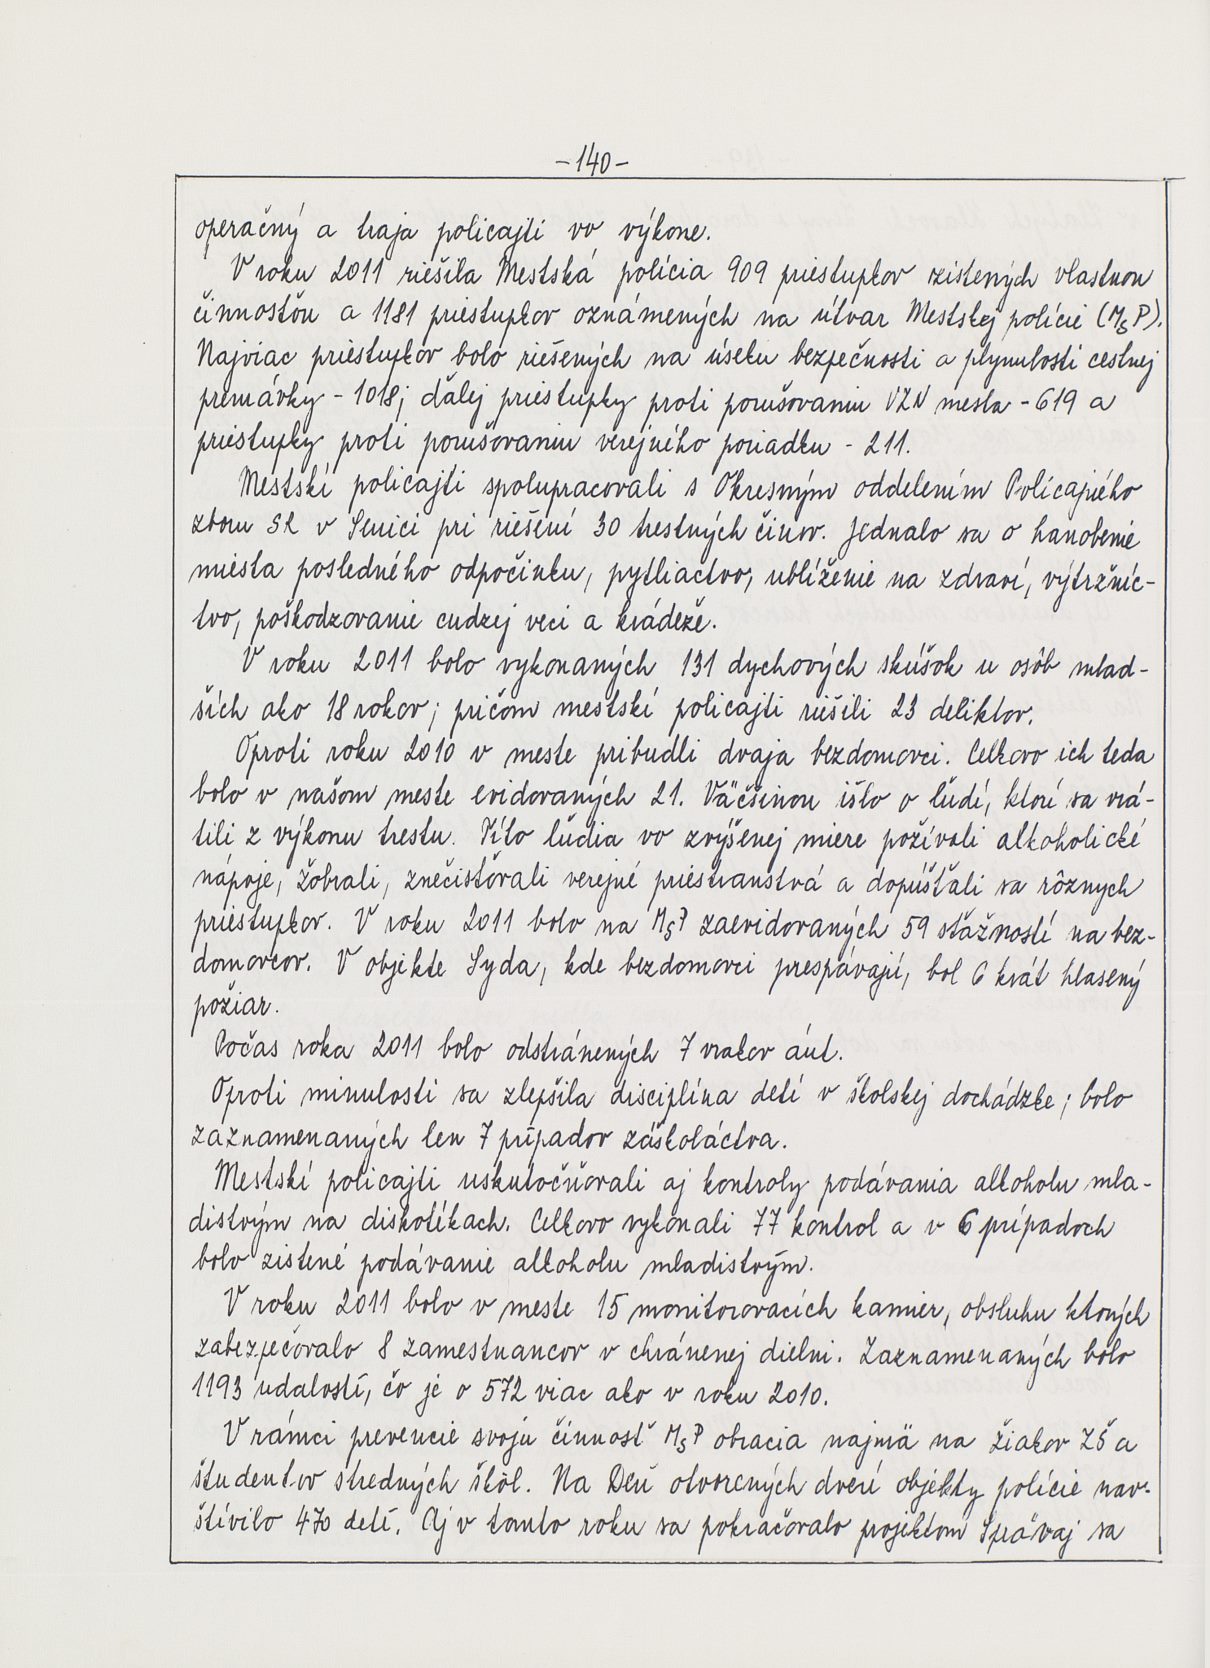 -140-
operačný a traja policajti vo výkone.
V roku 2011 riešila Mestská polícia 909 priestupkov zistených vlastnou
činnosťou a 1181 priestupkov oznámených na útvar Mestskej polície (MsP).
Najviac priestupkov bolo riešených na úseku bezpečnosti a plynulosti cestnej
premávky - 1018; ďalej priestupky proti porušovaniu VZN mesta - 619 a
priestupky proti porušovaniu verejného poriadku - 211.
Mestskí policajti spolupracovali s Okresným oddelením Policajného
zboru SR v Senici pri riešení 30 trestných činov. Jednalo sa o hanobenie
miesta posledného odpočinku, pytliactvo, ublíženie na zdraví, výtržníc-
tvo, poškodzovanie cudzej veci a krádeže.
V roku 2011 bolo vykonaných 131 dychových skúšok u osôb mlad-
ších ako 18 rokov; pričom mestskí policajti riešili 23 deliktov.
Oproti roku 2010 v meste pribudli dvaja bezdomovci. Celkovo ich teda
bolo v našom meste evidovaných 21. Väčšinou išlo o ľudí, ktorí sa vrá-
tili z výkonu trestu. Títo ľudia vo zvýšenej miere požívali alkoholické
nápoje, žobrali, znečisťovali verejné priestranstvá a dopúšťali sa rôznych
priestupkov. V roku 2011 bolo na MsP zaevidovaných 59 sťažností na bez-
domovcov. V objekte Syda, kde bezdomovci prespávajú, bol 6 krát hlasený
požiar.
Počas roka 2011 bolo odstránených 7 vrakov áut.
Oproti minulosti sa zlepšila disciplína detí v školskej dochádzke; bolo
zaznamenaných len 7 prípadov záškoláctva.
Mestskí policajti uskutočňovali aj kontroly podávania alkoholu mla-
distvým na diskotékach. Celkovo vykonali 77 kontrol a v 6 prípadoch
bolo zistené podávanie alkoholu mladistvým.
V roku 2011 bolo v meste 15 monitorovacích kamier, obsluhu ktorých
zabezpečovalo 8 zamestnancov v chránenej dielni. Zaznamenaných bolo
1193 udalostí, čo je o 572 viac ako v roku 2010.
V rámci prevencie svoju činnosť MsP obracia najmä na žiakov ZŠ a
študentov stredných škôl. Na Deň otvorených dverí objekty polície nav-
štívilo 470 detí. Aj v tomto roku sa pokračovalo projektom Správaj sa